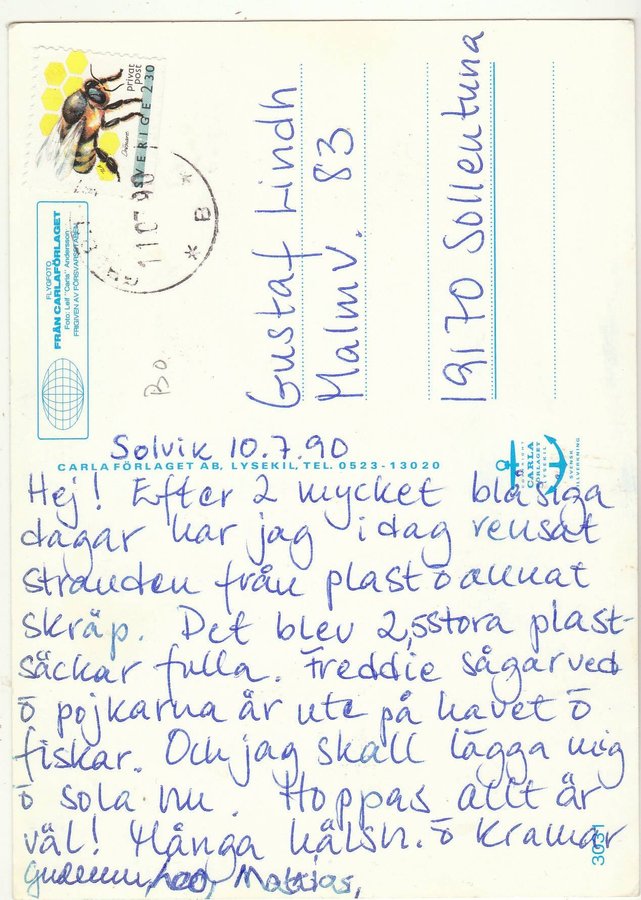 privat
post
SVERIGE 2.30
11.07.90
* B *
FLYGFOTO
FRÅN CARLAFÖRLAGET
Foto: Leif "Carla" Andersson
FRIGIVEN AV FÖRSVARSSTABEN
Bo
Gustaf Lindh
Malmv. 83
19170 Sollentuna
Solvik 10.7.90
CARLAFÖRLAGET AB, LYSEKIL, TEL. 0523-13020
COPYRIGHT
CARLA
FÖRLAGET
LYSEKIL
SVENSK
TILLVERKNING
Hej! Efter 2 mycket blåsiga
dagar har jag idag rensat
stranden från plast o annat
skräp. Det blev 2,5 stora plast-
säckar fulla. Freddie sågar ved
o pojkarna är ute på havet o
fiskar. Och jag skall lägga mig
o sola nu. Hoppas allt är
väl! Många hälsn. o kramar
Mattias,
3031